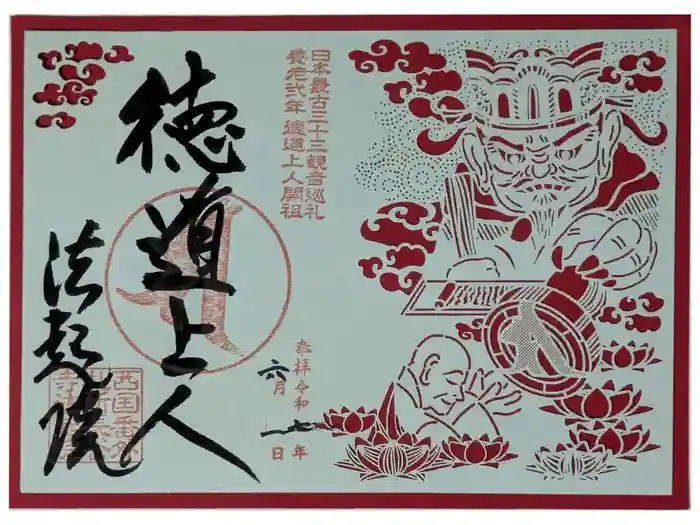 日本最古三十三観音巡礼
養老弐年 徳道上人開祖
徳道上人
奉拝 令和七年
六月一日
法起院
西国番外